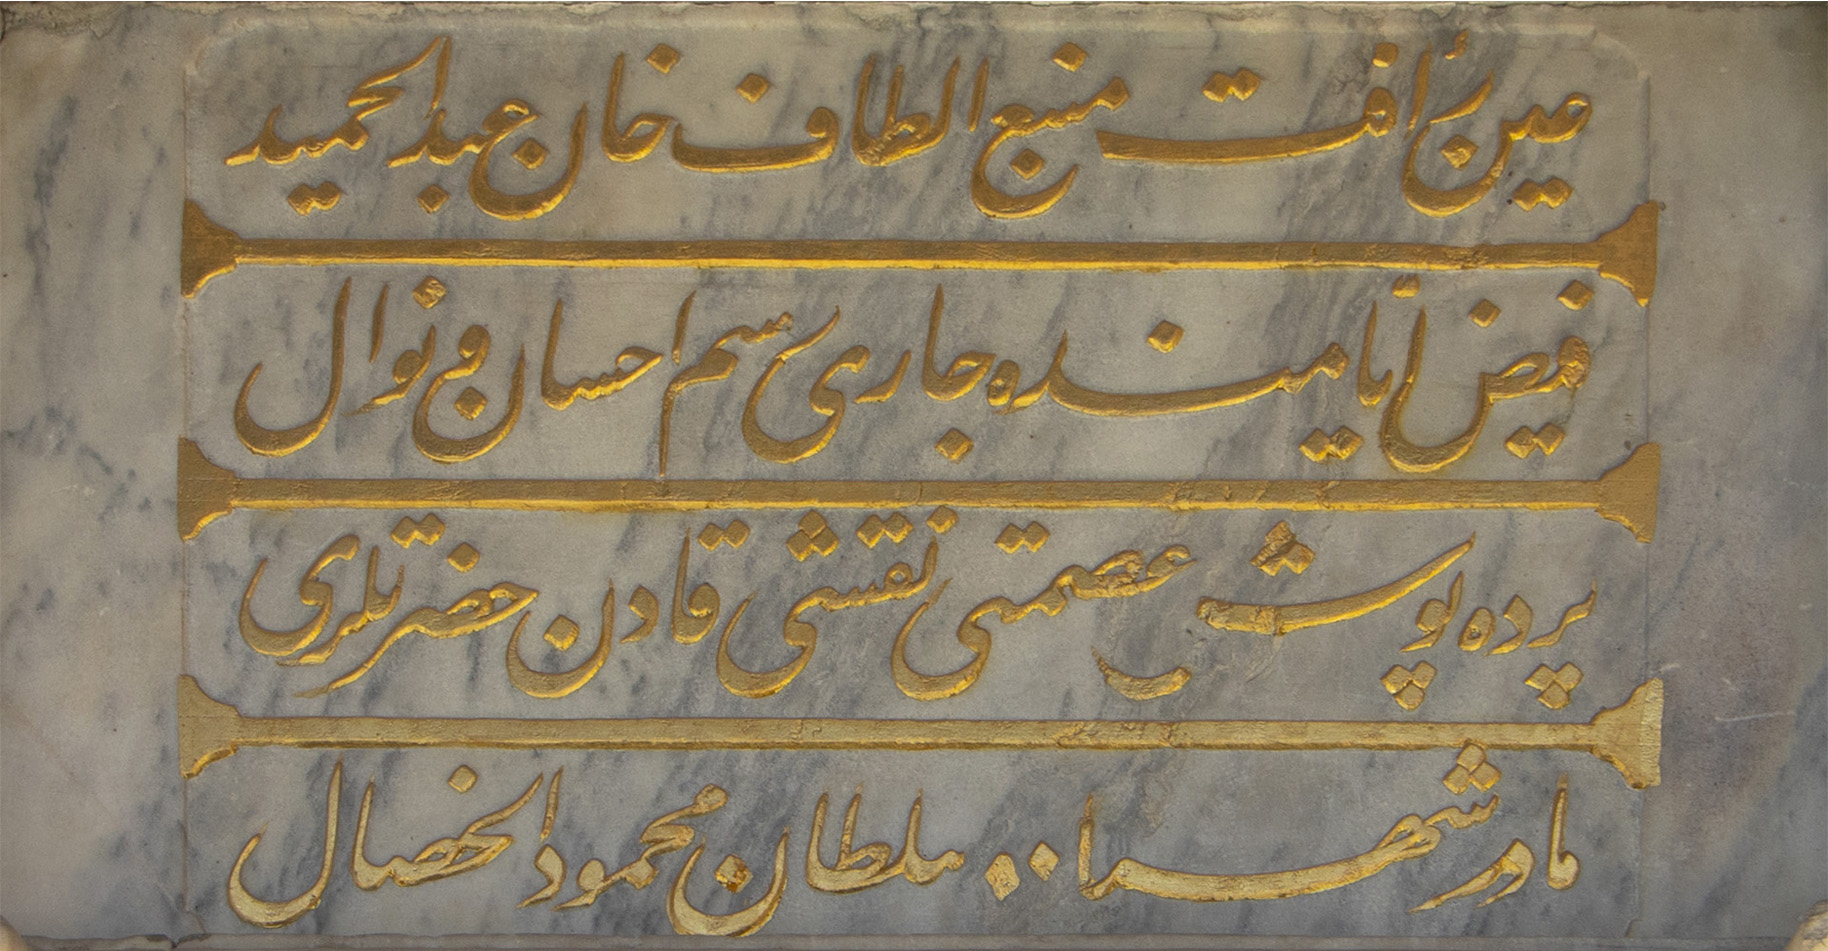 عين رأفت منبع الطاف خان عبد الحميد
فيض ايامنده جارى رسم احسان و نوال
پرده پوش عصمتى نقشى قادن حضرتلرى
مادر سلطان محمود الخصال